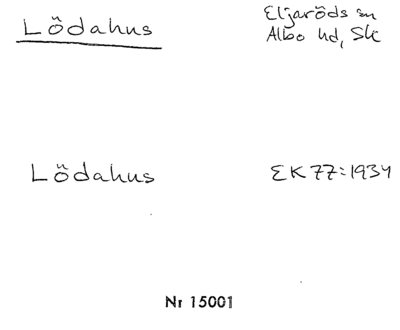 Lödahus
Eljaröds sn
Albo hd, Sk
Lödahus
EK 77:1934
Nr 15001